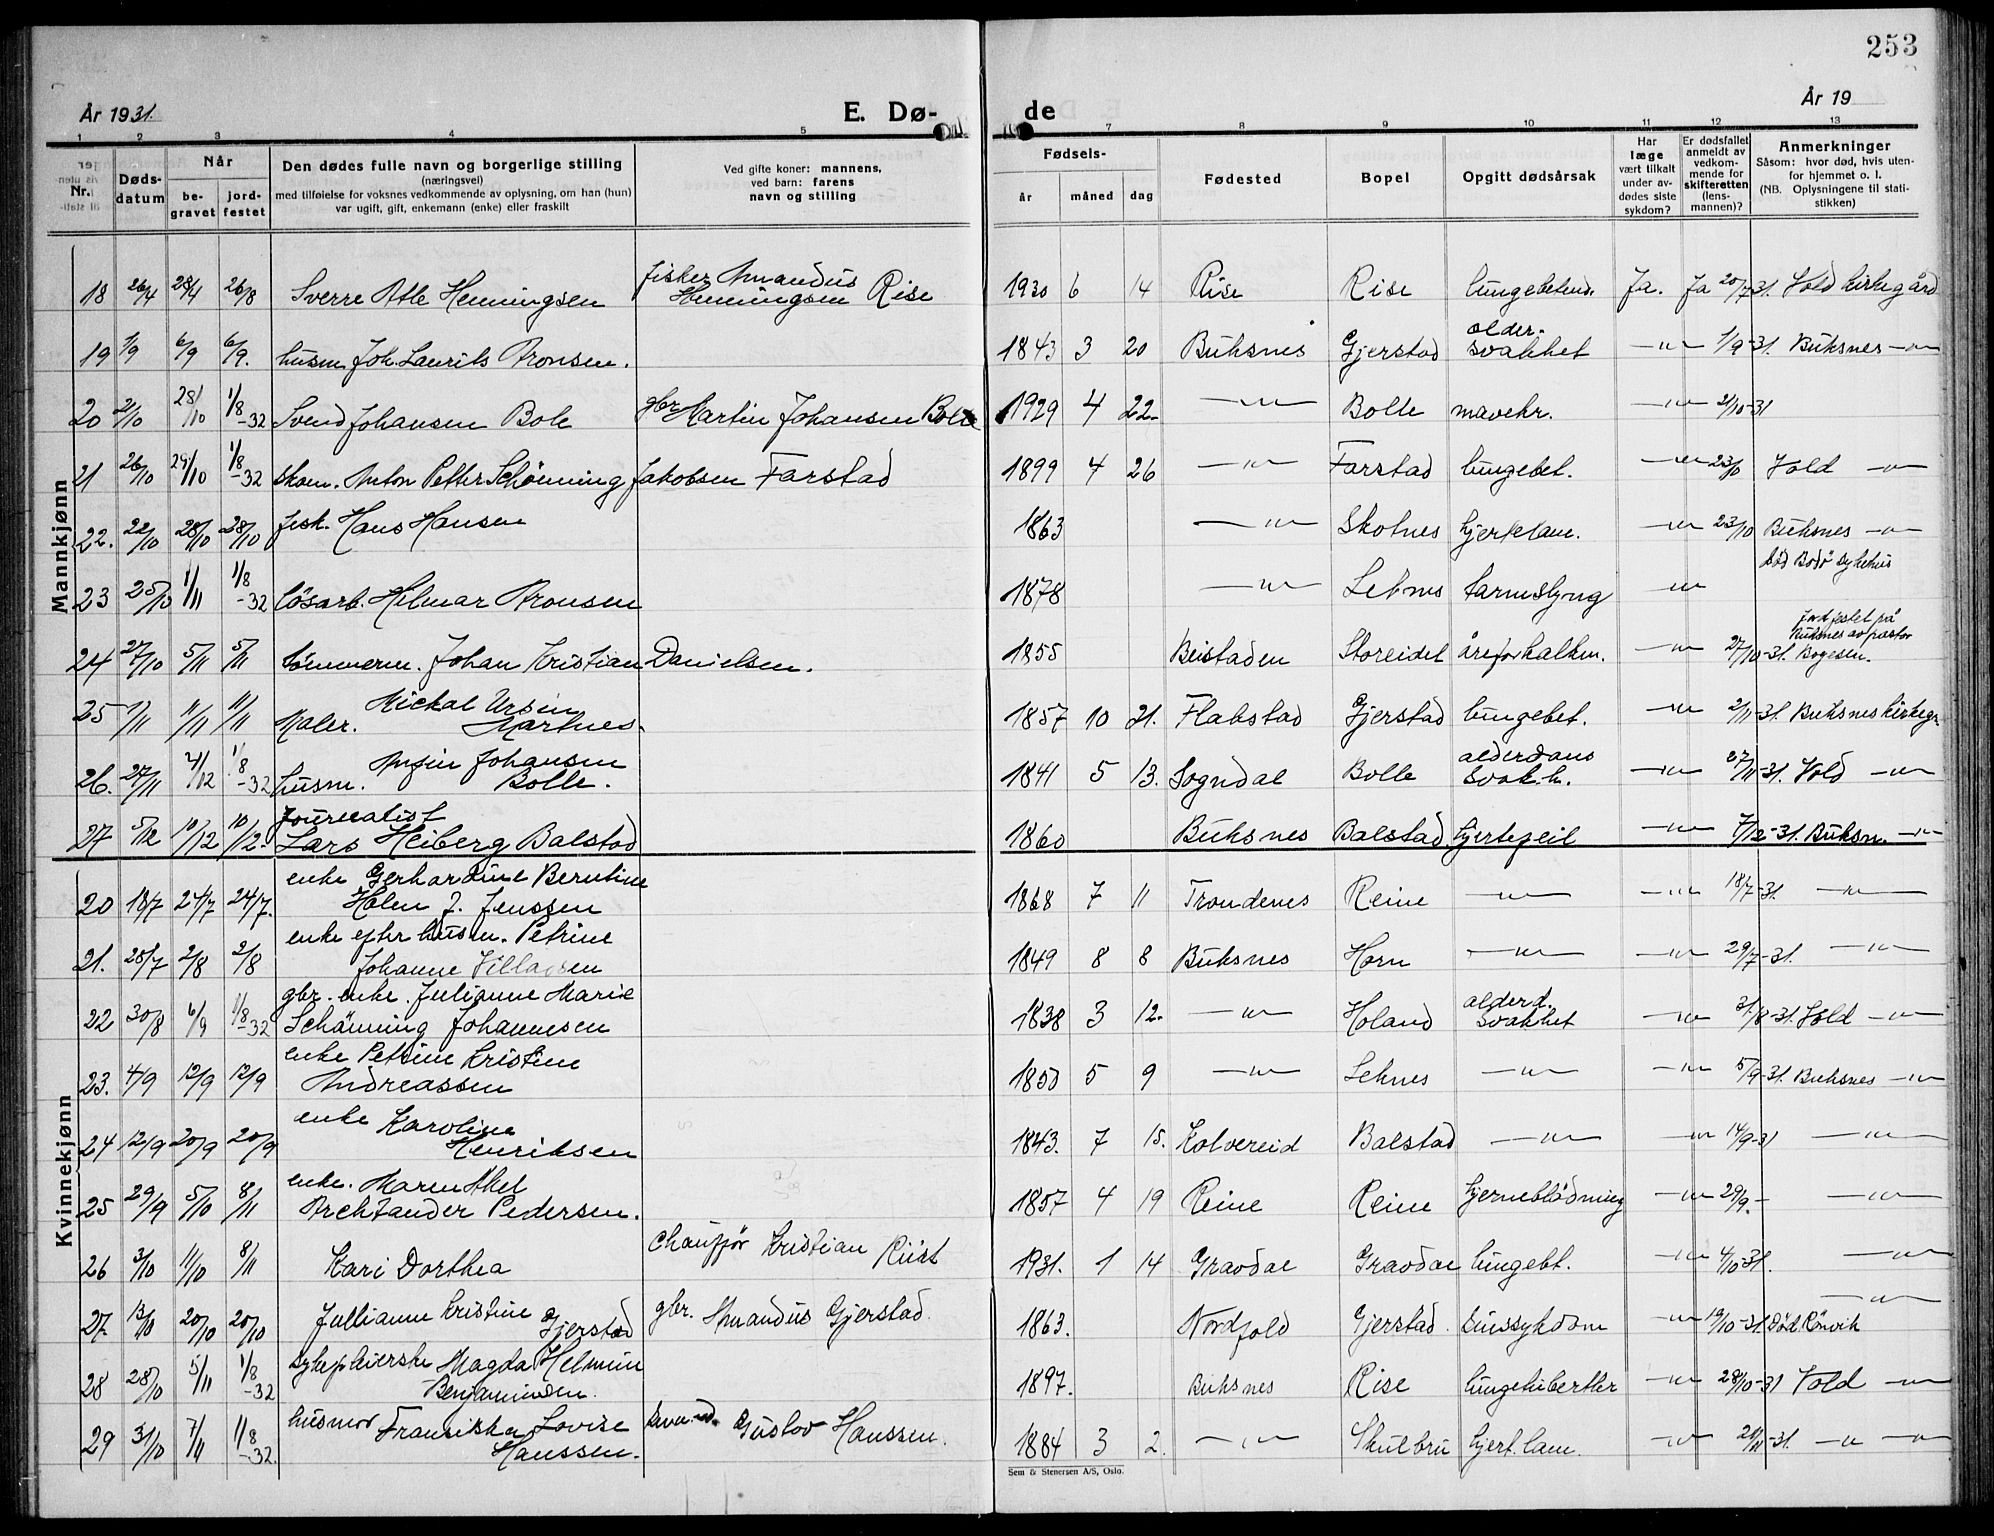 253
År 1931.
E. Dø-
de
År 19
1 2 3 4 5 7 8 9 10 11 12 13
Nr.
Døds-
datum
Når
be-
gravet
jord-
festet
Den dødes fulle navn og borgerlige stilling
(næringsvei)
med tilføielse for voksnes vedkommende av oplysning, om han (hun)
var ugift, gift, enkemann (enke) eller fraskilt
Ved gifte koner: mannens,
ved barn: farens
navn og stilling
Fødsels-
år måned dag
Fødested
Bopel
Opgitt dødsårsak
Har
læge
vært tilkalt
under av-
dødes siste
sykdom?
Er dødsfallet
anmeldt av
vedkom-
mende for
skifteretten
(lens-
mannen)?
Anmerkninger
Såsom: hvor død, hvis uten-
for hjemmet o. l.
(NB. Oplysningene til stati-
stikken)
Mannkjønn
18 26/4 28/4 26/8 Sverre Atle Henningsen fisker Amandus Henningsen Rise 1930 6 14 Rise Rise lungebetend. Ja. Ja 20/7-31. Vold kirkegård
19 1/9 6/9 6/9. husm. Joh. Laurits Aronsen. 1843 3 20 Buksnes Gjerstad alder-svakhet —"— 1/9-31. Buksnes —"—
20 21/10 28/10 1/8-32 Svend Johansen Bole gbr Martin Johansen Bolle 1929 4 22 —"— Bolle mavekr. —"— 21/10-31
21 26/10 29/10 1/8-32 skom. Anton Petter Schönning Jakobsen Farstad 1899 4 26 —"— Farstad lungebet. —"— Vold —"—
22. 22/10 28/10 28/10 fisk. Hans Hansen 1863 —"— Skotnes hjertelam. —"— 23/10 Buksnes —"—
23 25/10 1/11 1/8-32 lösarb. Helmar Aronsen 1878 —"— Leknes tarmslyng —"— död Bodö sykehus
24 27/10 5/11 5/11 tömmerm. Johan Kristian Danielsen. 1855 Beistaden Storeidet åreforkalkn. —"— 27/10-31. Jordfestet på Buksnes av pastor Bogesen.
25 1/11 11/11 11/11 Maler. Mickal Ursin Hartnes. 1857 10 21. Flakstad Gjerstad lungebet. —"— 2/11-31. Buksnes kirkeg.
26. 27/11 4/12 1/8-32 husm. Ansin Johansen Bolle. 1841 5 13. Sogndal Bolle alderdoms svakh. —"— 27/11-31. Vold —"—
27 5/12 10/12 10/12. Journalist Lars Heiberg Balstad 1860 Buksnes Balstad hjertefeil —"— 7/12-31. Buksn. —"—
Kvinnekjønn
20 18/7 24/7 24/7. enke Gerhardine Berntine Holen J. Jenssen 1868 7 11 Trondenes Reine —"— —"— 18/7-31. —"—
21. 28/7 2/8 2/8 enke efter husm. Petrine Johanne Villassen 1849 8 8 Buksnes Horn —"— —"— 29/7-31. —"—
22 30/8 6/9 1/8-32 gbr. enke. Julianne Marie Schönning Johannesen 1838 3 12. —"— Holand alderd. svakhet —"— 31/8-31. Vold —"—
23. 4/9 12/9 12/9 enke Petrine Kristine Andreassen 1850 5 9 —"— Leknes —"— —"— 5/9-31. Buksnes —"—
24 12/9 20/9 20/9 enke Karoline Henriksen 1843. 7 15. Kolvereid Balstad —"— —"— 14/9-31 —"—
25 29/9 5/10 8/11 enke. Maren Abel Archtander Pedersen. 1857 4 19 Reine Reine hjerneblödning —"— 29/9- —"—
26 3/10 11/10 8/11 Kari Dorthea Chaufför Kristian Riist 1931. 1 14 Gravdal Gravdal lungebt. —"— 4/10-31. —"—
27. 13/10 20/10 20/10 Jullianne Kristine Gjerstad gbr. Amandus Gjerstad. 1863. Nordfold Gjerstad. sinssykdom —"— 19/10-31 Död Rönvik —"—
28 28/10 5/11 1/8-32 sykepleierske Magda Helmine Benjaminsen. 1897. Buksnes Rise lungetuberkler —"— 28/10-31 Vold —"—
29 31/10 7/11 1/8-32. husmor Fransiska Lovise Hanssen. Gustav Hanssen. 1884 3 2. —"— Skulbru hjert. lam. —"— —"— —"—
Sem & Stenersen A/S, Oslo.